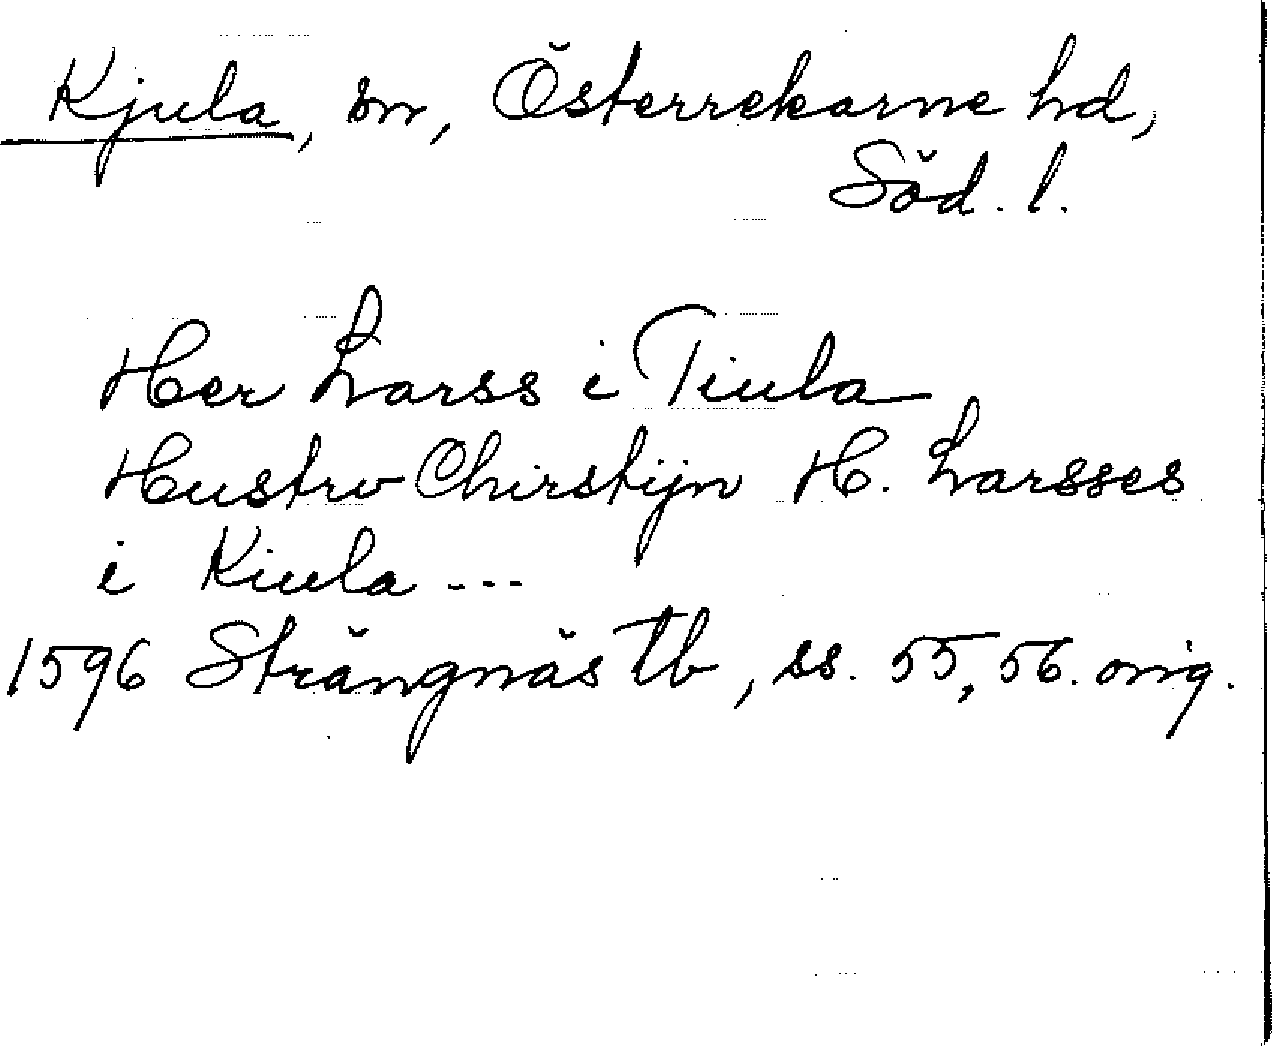 Kjula, sn, Österrekarne hd,
Söd. l.
Her Larss i Tiula
Hustrv Chirstijn H. Larsses
i Kiula ---
1596 Strängnäs Tb, ss. 55, 56. orig.